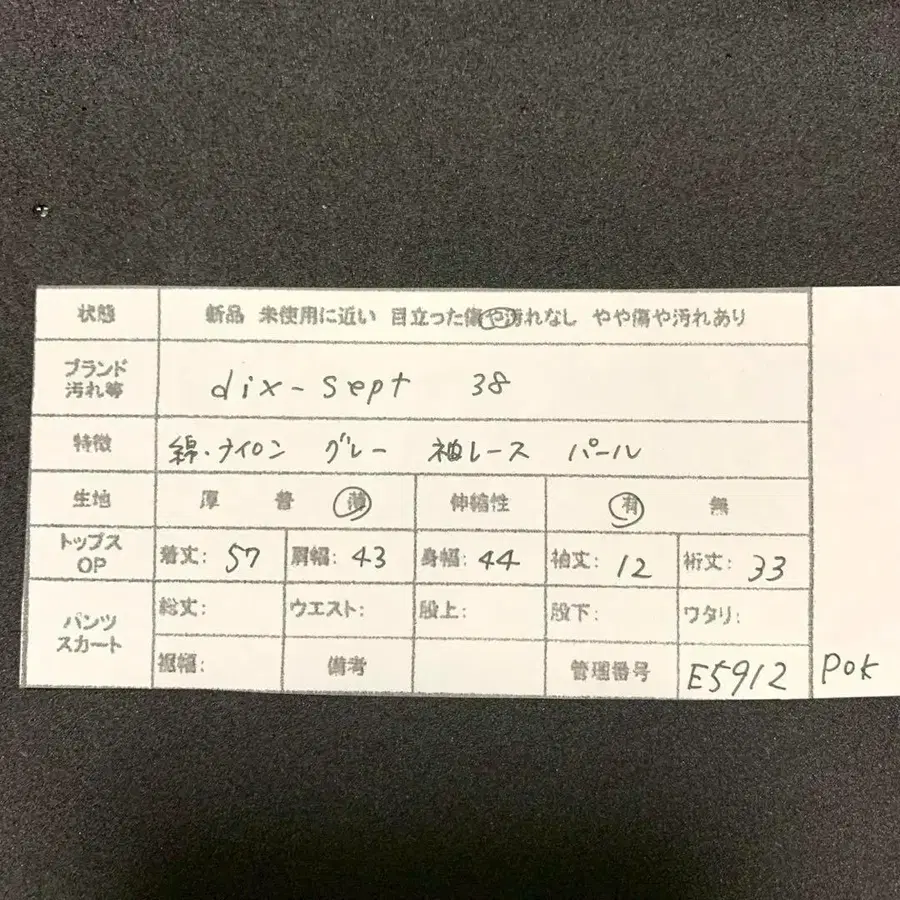 状態 新品 未使用に近い 目立った傷や汚れなし やや傷や汚れあり
ブランド
汚れ等 dix-sept 38
特徴 綿・ナイロン グレー 袖レース パール
生地 厚 普 薄 伸縮性 有 無
トップス
OP 着丈: 57 肩幅: 43 身幅: 44 袖丈: 12 裄丈: 33
パンツ
スカート 総丈: ウエスト: 股上: 股下: ワタリ:
裾幅: 備考 管理番号 E5912 POK